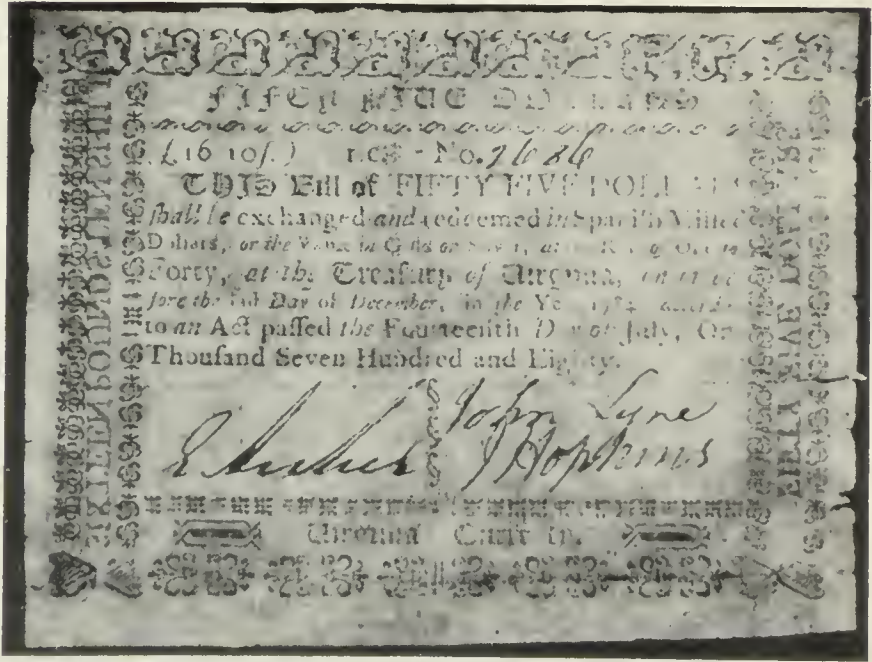 FIFTY FIVE DOLLARS
£16 10ſ.) No. 2686
THIS Bill of FIFTY FIVE DOLLARS
ſhall be exchanged and redeemed in Spaniſh Milled
Dollars, or the Value in Gold or Silver, at the Rate of One to
Forty, at the Treaſury of Virginia, on or be-
fore the Day of December, in the Year 1784
to an Act paſſed the Fourteenth Day of July, One
Thouſand Seven Hundred and Eighty.
John Lyne
J Hopkins
Virginia Curren
FIFTY FIVE DOLL